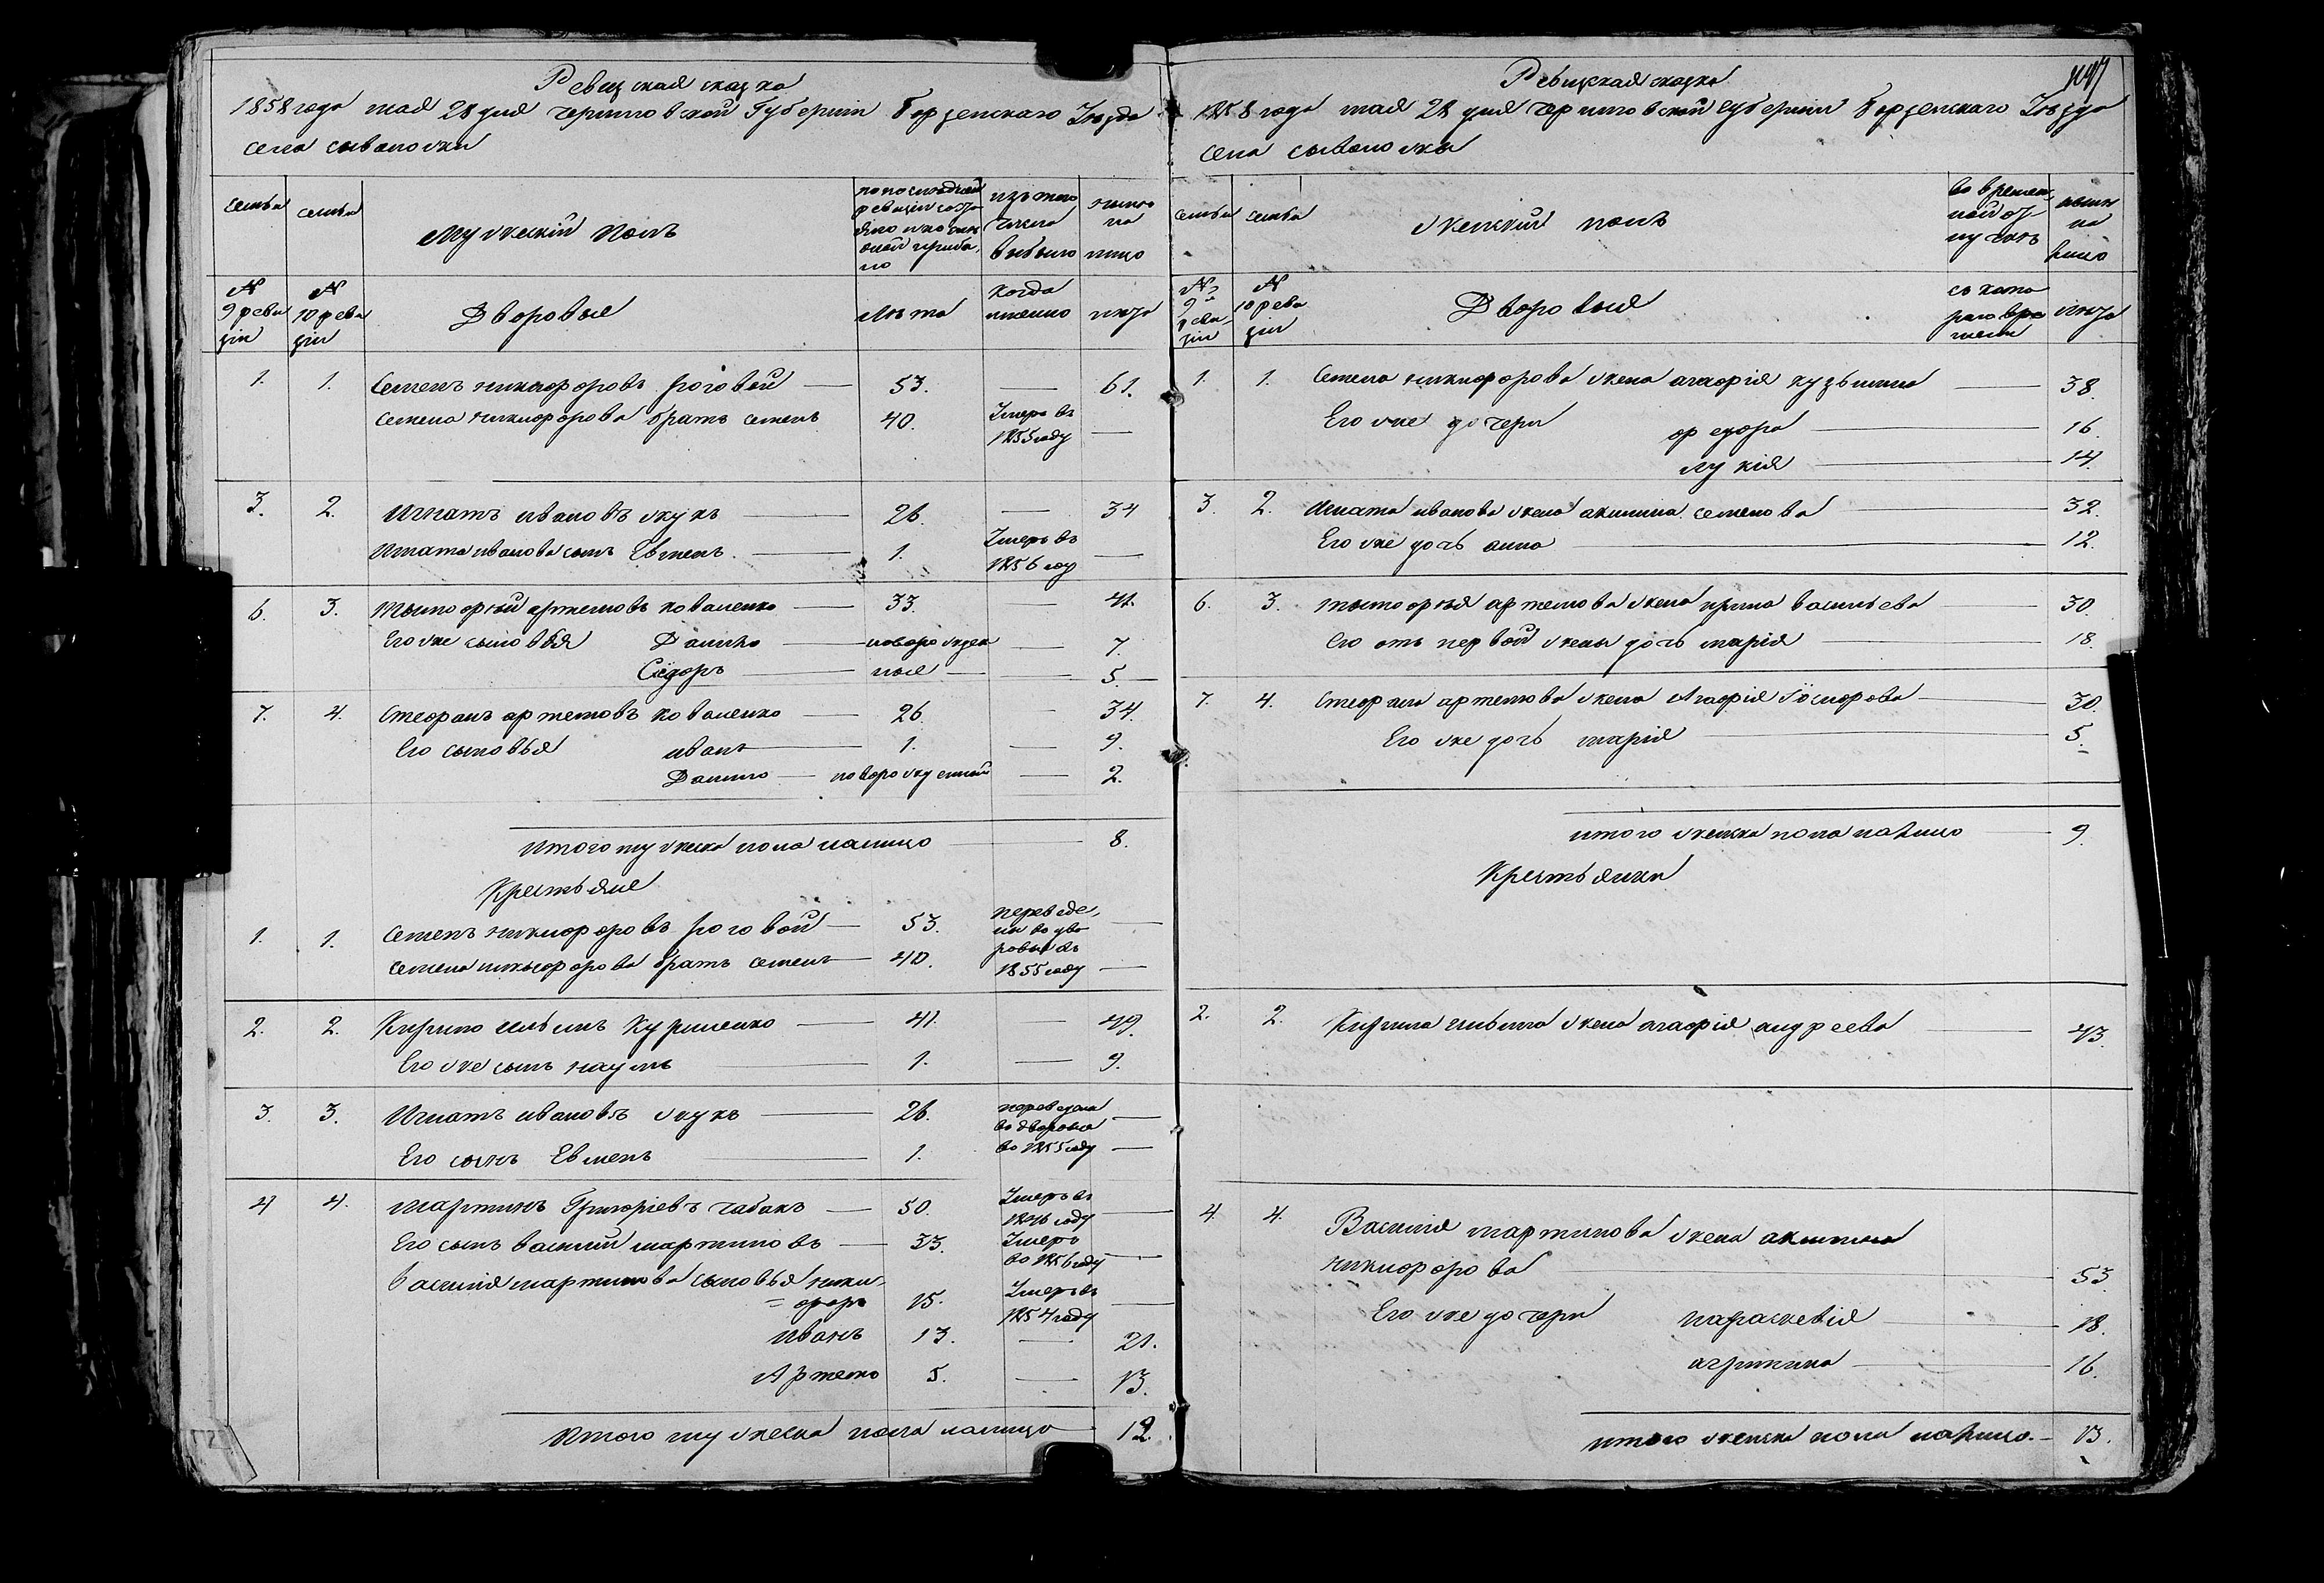 Ревизская сказка
1858 года мая 28 дня черниговской Губернии Борзенскаго Уезда
села сиволожки
семьи
семьи
Мужеский полъ
по последней ревизіи состояло и после оной прибыло
изъ того числа выбыло
ныне на лицо
№ 9 ревизіи
№ 10 ревизіи
Дворовые
Лета
когда именно
лета
1. 1. Семенъ никифоровъ роговой — 53. — 61.
Семена никифорова братъ семенъ 40. Умеръ въ 1855 году —
3. 2. Игнатъ ивановъ жукъ — 26. — 34
Игната иванова сынъ Евменъ — 1. Умеръ въ 1856 году —
6. 3. тимофый артемовъ коваленко — 33. — 41.
Его же сыновья Данило — новорожден — 7.
Сидоръ — ные — 5.
7. 4. Стефанъ артемовъ коваленко — 26. — 34.
Его сыновья иванъ — 1. — 9.
Данило — новорожденный — 2.
итого мужеска пола налицо — 8.
Крестьяне
1. 1. Семенъ никифоровъ роговой — 53. переведены во дворовые въ 1855 году —
семена никифорова братъ семенъ — 40. —
2. 2. Кирило ильинъ Куриленко — 41. — 49.
Его же сынъ наумъ — 1. — 9.
3. 3. Игнатъ ивановъ жукъ — 26. переведены во дворовые во 1855 году —
Его сынъ Евменъ — 1. —
4 4. мартинъ Григоріевъ чабакъ — 50. Умеръ въ году —
Его сынъ василий мартиновъ — 33. Умеръ во 1856 году —
Василия мартинова сыновья ники-
= форъ 15. Умеръ въ 1854 году —
иванъ 13. — 21.
Артемъ 5. — 13.
Итого мужеска пола налицо 12.
Ревизская сказка
1858 года мая 28 дня черниговской Губернии Борзенскаго Уезда
села сиволожки
семьи
семьи
женский полъ
во временной отлучке
ныне на лицо
№ 9й ревизіи
№ 10 ревизіи
Дворовые
съ котораго времени
лета
1. 1. Семена никифорова жена агафія кузьмина — 38.
Его же дочери федора — 16.
лукія — 14.
3. 2. Игната иванова жена акилина семенова — 32.
Его же дочь анна — 12.
6. 3. тимофыя артемова жена ирина васильева — 30.
Его отъ первой жены дочь марія — 18.
7. 4. Стефана артемова жена Агафія — 30.
Его же дочь марія — 5.
итого женска пола налицо — 9.
Крестьянки
2. 2. Кирила ильина жена агафія андреева — 43.
4. 4. Василия мартинова жена акилина
никифорова — 53
Его же дочери параскевія — 18.
агрипина — 16.
итого женска пола налицо — 13.